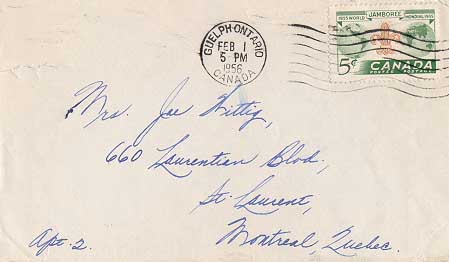 1955 WORLD JAMBOREE MONDIAL 1955
5¢ CANADA
POSTES POSTAGE
GUELPH·ONTARIO
FEB 1
5 PM
1956
CANADA
Mrs. Joe Wittig,
660 Laurentian Blvd.,
St. Laurent,
Apt. 2. Montreal, Quebec.